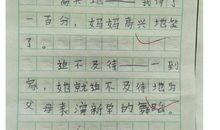 高兴地——我得了
一百分，妈妈高兴地签
了。
迫不及待——一到
家，她就迫不及待地为
父母表演新学的舞蹈。